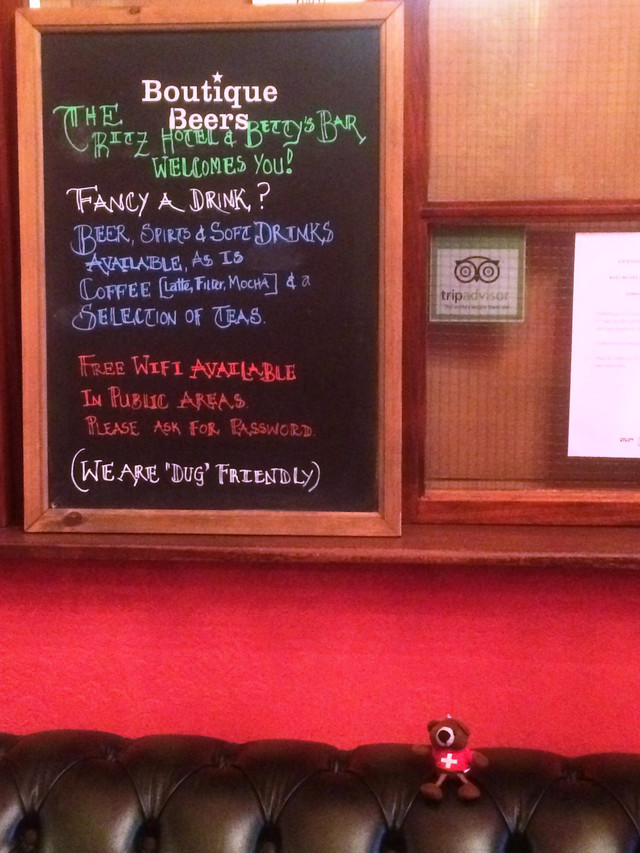 Boutique
Beers
THE
RITZ HOTEL & BETTY'S BAR
WELCOMES YOU!
FANCY A DRINK?
BEER, SPIRTS & SOFT DRINKS
AVAILABLE, AS IS
COFFEE [Latte, Filter, MOCHA] & a
SELECTION OF TEAS.
FREE WIFI AVAILABLE
IN PUBLIC AREAS.
PLEASE ASK FOR PASSWORD.
(WE ARE 'DUG' FRIENDLY)
tripadvisor